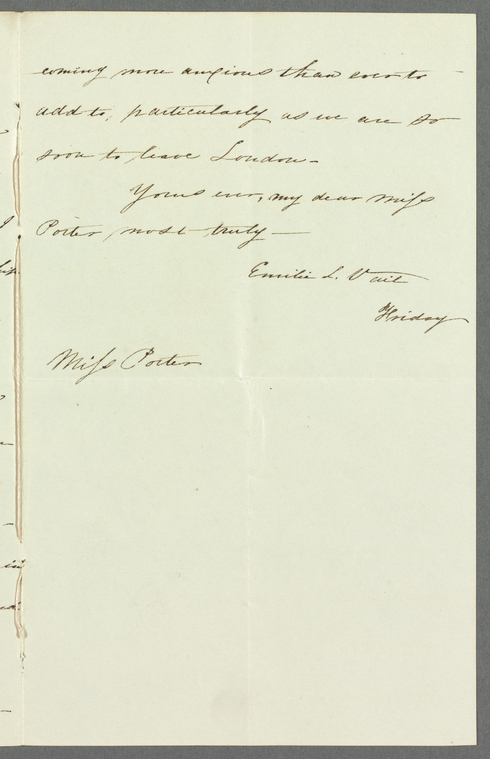 coming more anxious than ever to
add to, particularly as we are so
soon to leave London -
Yours ever, my dear Miss
Porter most truly -
Emilie L. Vail
Friday
Miss Porter